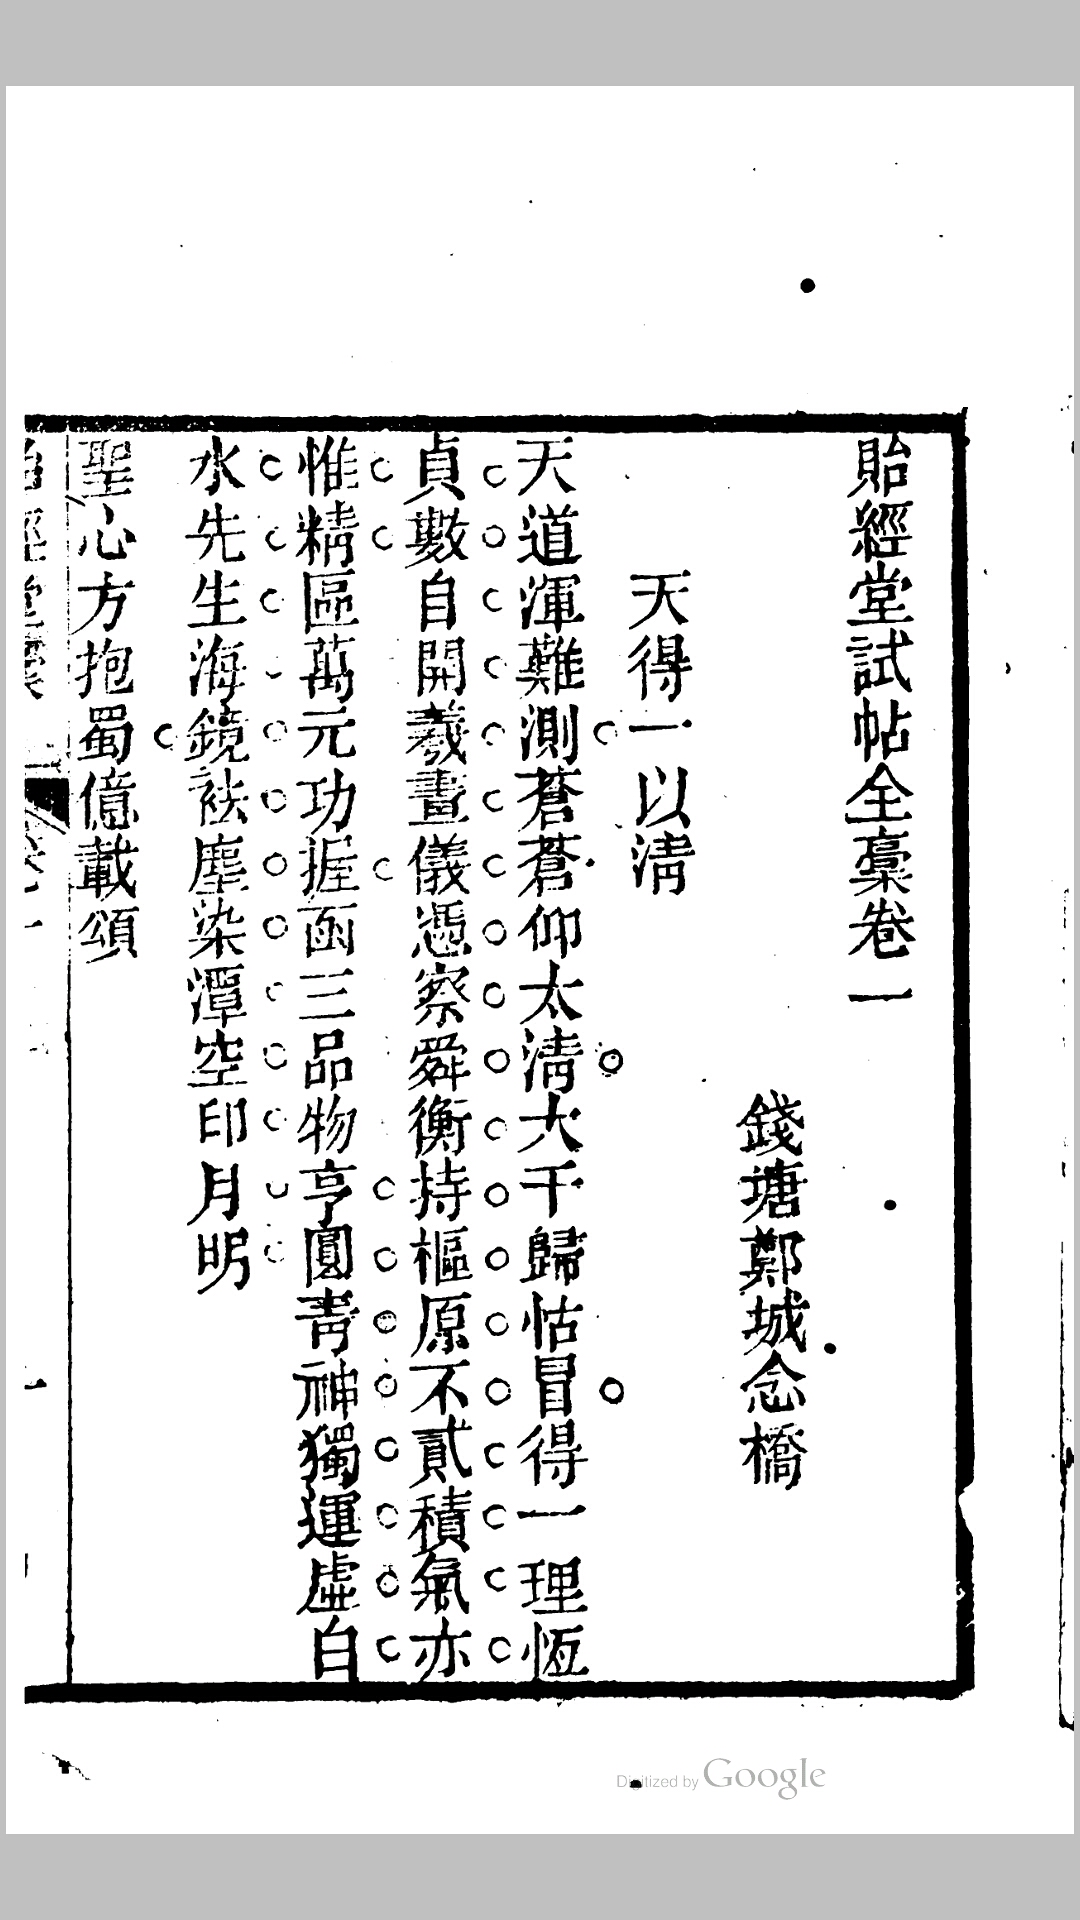 貽經堂試帖全藁卷一
錢塘鄭城念橋
天得一以淸
天道渾難測蒼蒼仰太淸大千歸怙冒得一理恆
貞數自開羲畫儀憑察舜衡持樞原不貳積氣亦
惟精區萬元功握函三品物亨圓靑神獨運虛白
水先生海鏡袪塵染潭空印月明
聖心方抱蜀億載頌
Digitized by Google